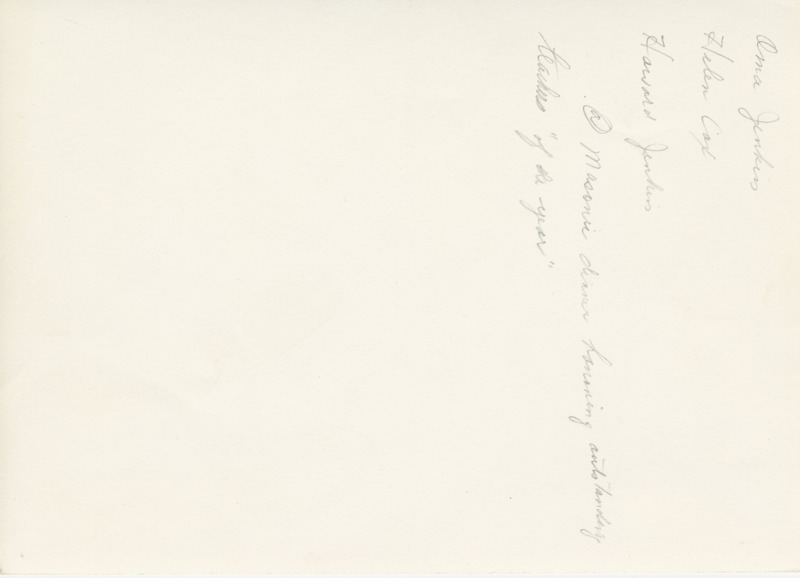 Oma Jenkins
Helen Cox
Howard Jenkins
@ Masonic dinner honoring outstanding
teachers "of the year"